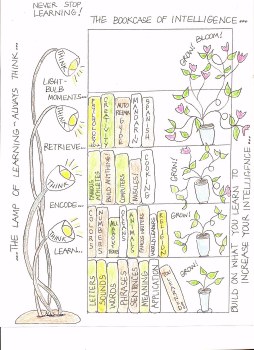 NEVER STOP
LEARNING!
THE BOOKCASE OF INTELLIGENCE...
...THE LAMP OF LEARNING - ALWAYS THINK...
LIGHT-
BULB
MOMENTS...
THINK
RETRIEVE...
THINK
ENCODE...
THINK
LEARN...
CREATIVITY
AUTO
REPAIR
GUIDE
MANDARIN
SPANISH
GROW! BLOOM!
BUILD ANYTHING!
COMPUTERS
MUSCLES!
COOKING
GROW!
COLORS
NUMBERS
ANIMALS
RELIGION
GROW!
LETTERS
SOUNDS
WORDS
PHRASES
SENTENCES
MEANING
APPLICATION
GROW!
BUILD ON WHAT YOU LEARN TO
INCREASE YOUR INTELLIGENCE...